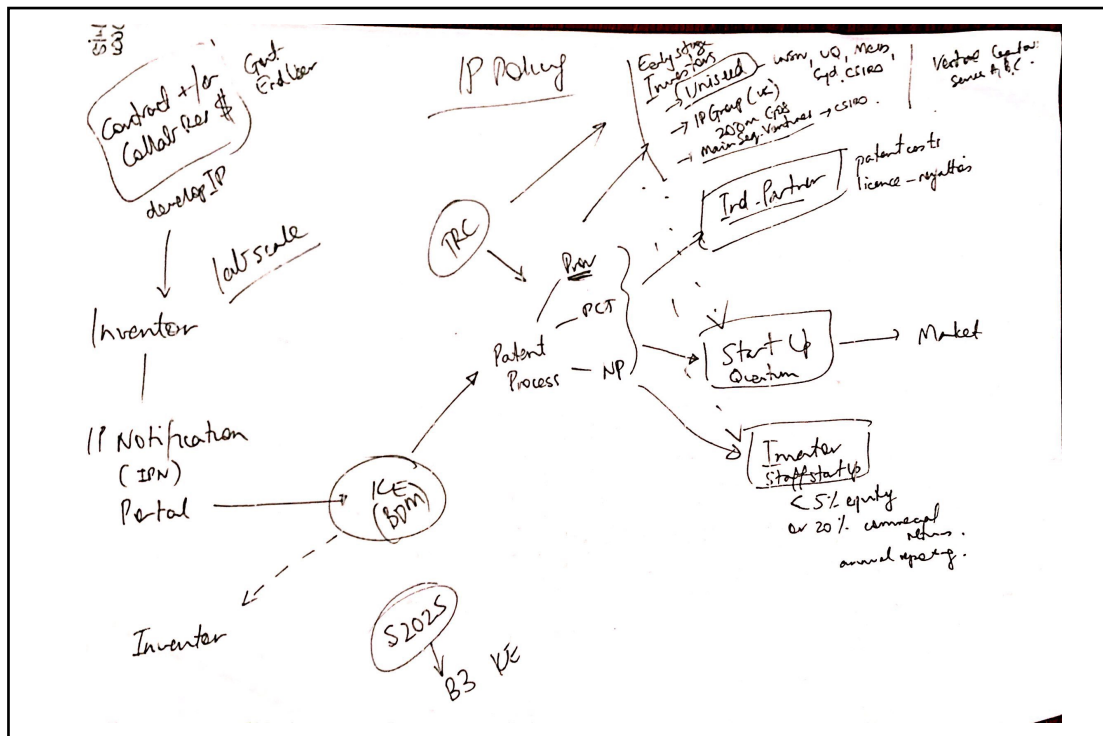 IP Policy
Contract +/or
Collab Res $
Govt.
End User
develop IP
lab scale
Inventor
IP Notification
(IPN)
Portal
KE
(BDM)
Inventor
S2025
B3 KE
TRC
Patent
Process
Prov
PCT
NP
Early stage
Investors
→ Uniseed - UNSW, UQ, Melb,
Syd, CSIRO
→ IP Group (UK)
200m Go8
→ Main Seq. Ventures → CSIRO.
Venture Capital:
series A, B, C.
Ind. Partner
patent costs
licence - royalties
Start Up
Quantum
Market
Inventor
Staff start up
< 5% equity
or 20% commercial
returns.
annual reporting.